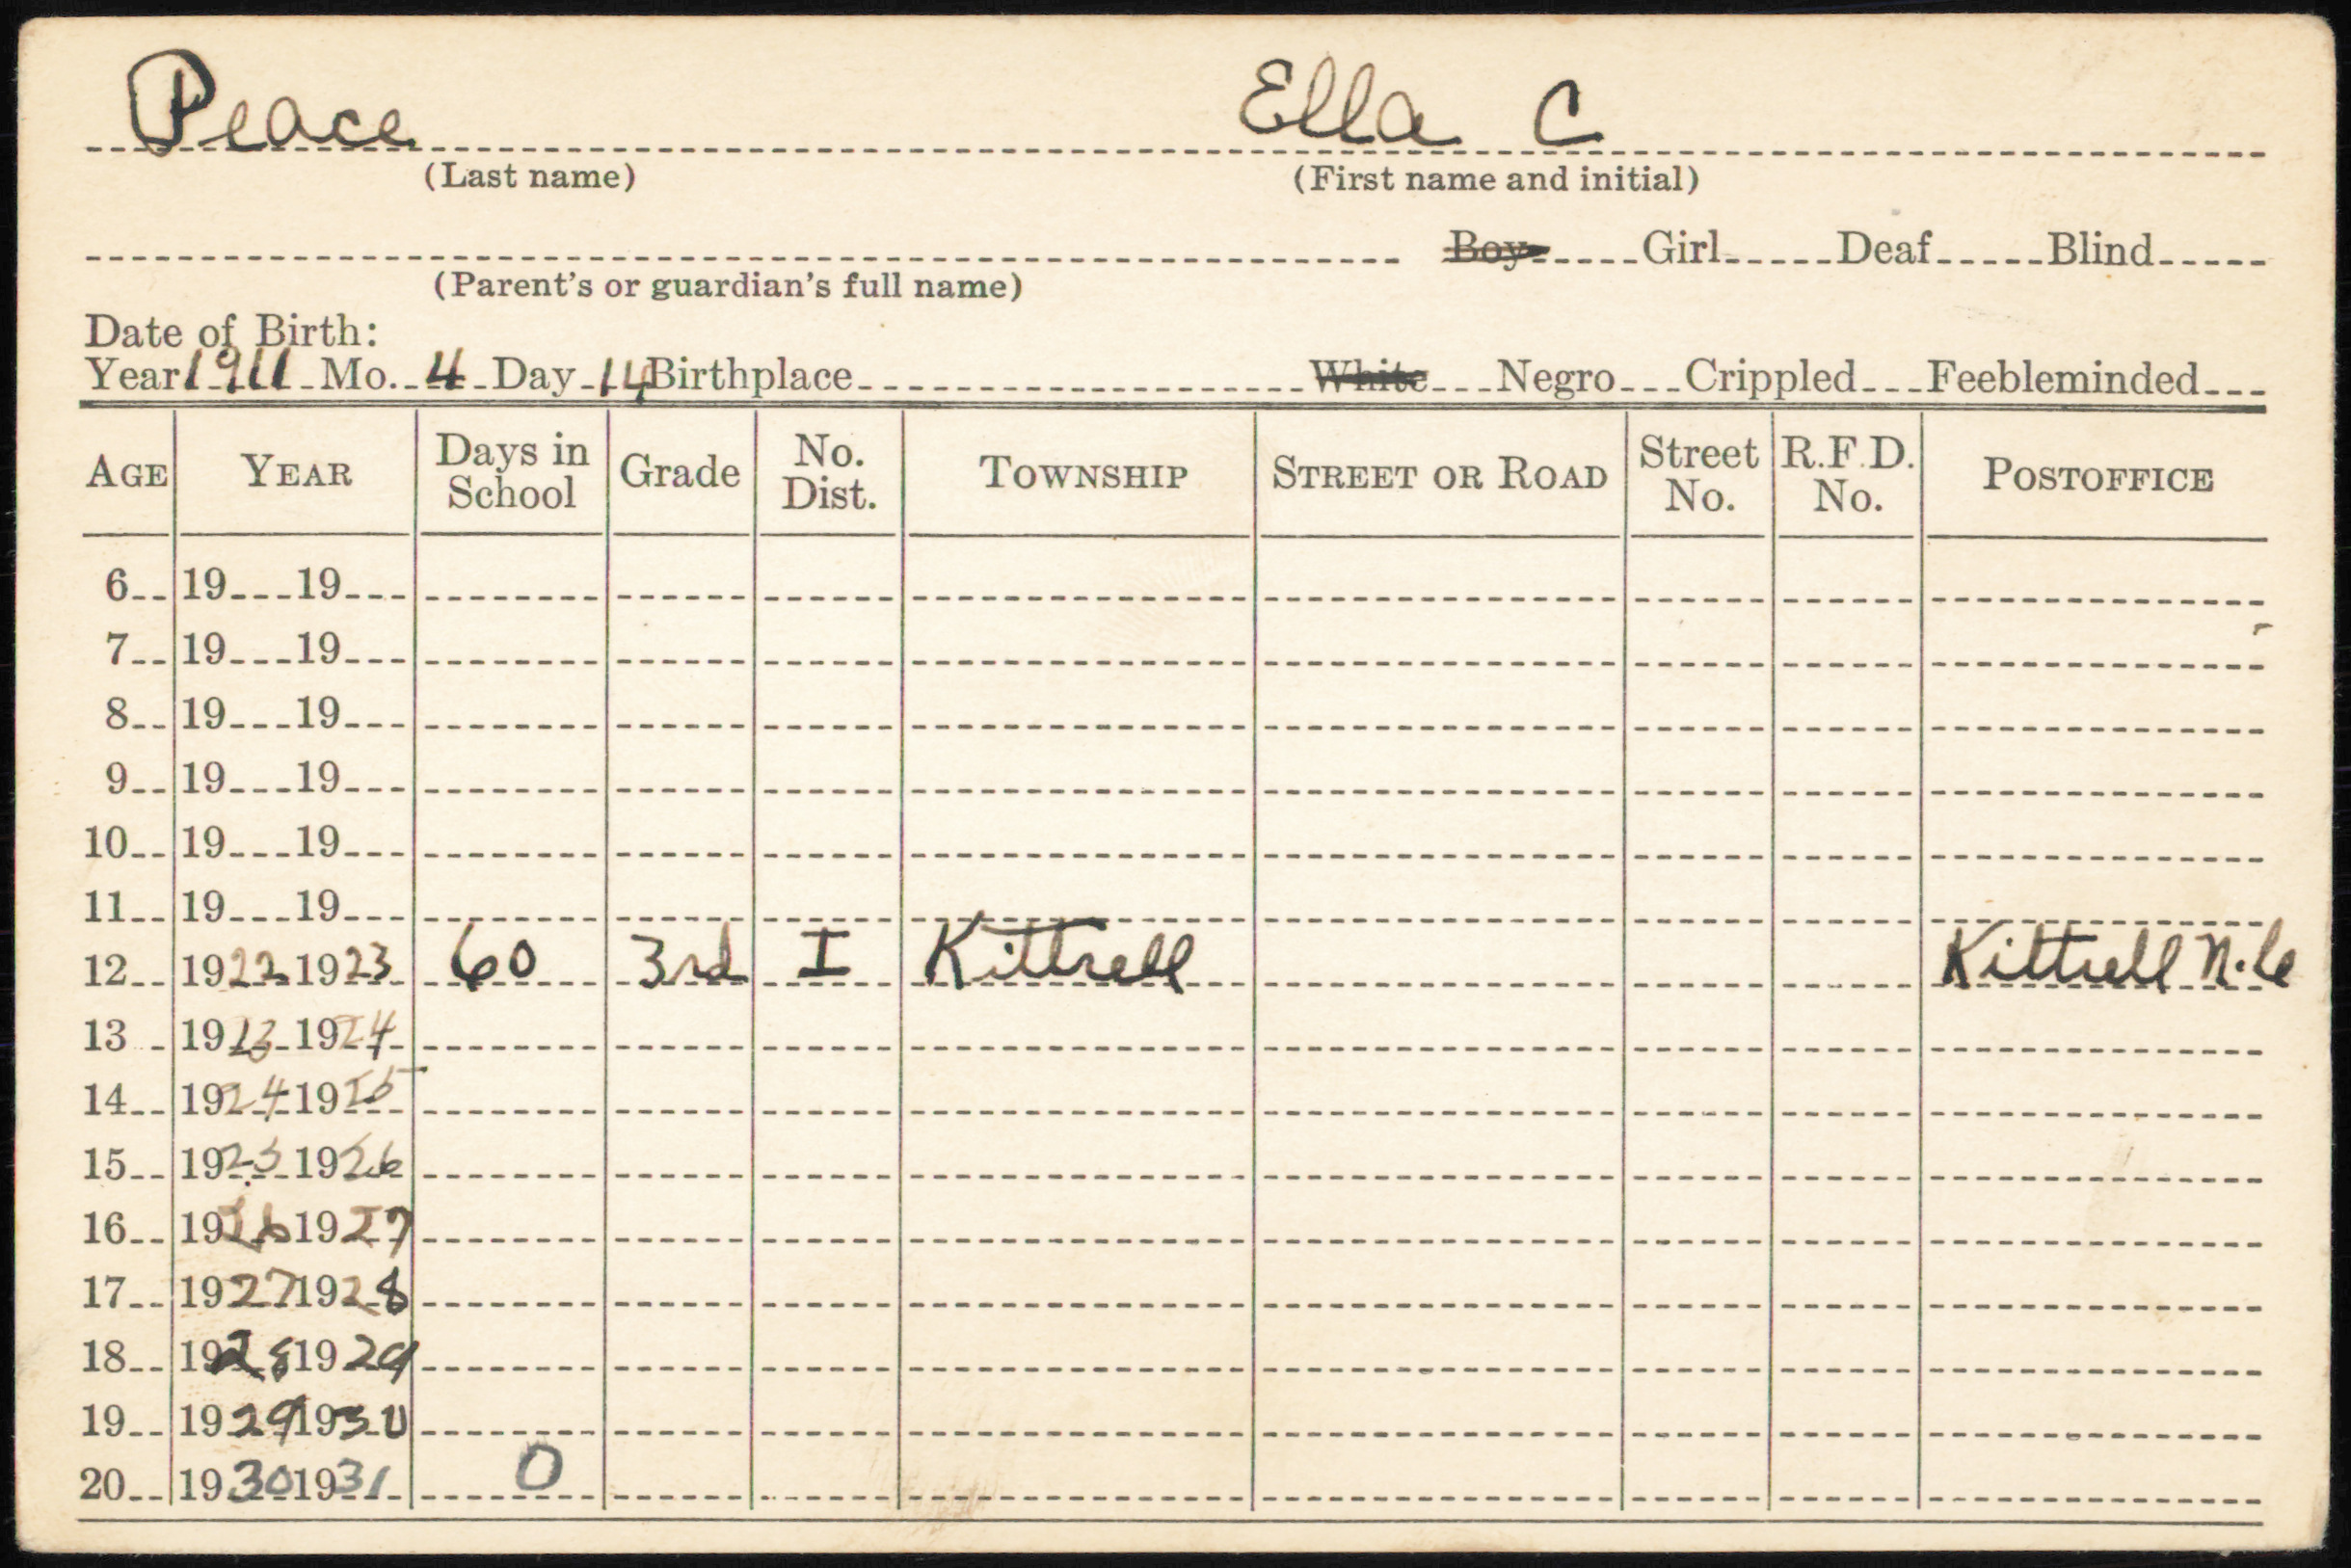 Peace Ella C
(Last name) (First name and initial)
Boy Girl Deaf Blind
(Parent's or guardian's full name)
Date of Birth:
Year 1911 Mo. 4 Day 14 Birthplace White Negro Crippled Feebleminded
AGE YEAR Days in School Grade No. Dist. TOWNSHIP STREET OR ROAD Street No. R.F.D. No. POSTOFFICE
6 19 19
7 19 19
8 19 19
9 19 19
10 19 19
11 19 19
12 1922 1923 60 3rd I Kittrell Kittrell N.C
13 1923 1924
14 1924 1925
15 1925 1926
16 1926 1927
17 1927 1928
18 1928 1929
19 1929 1930
20 1930 1931 0